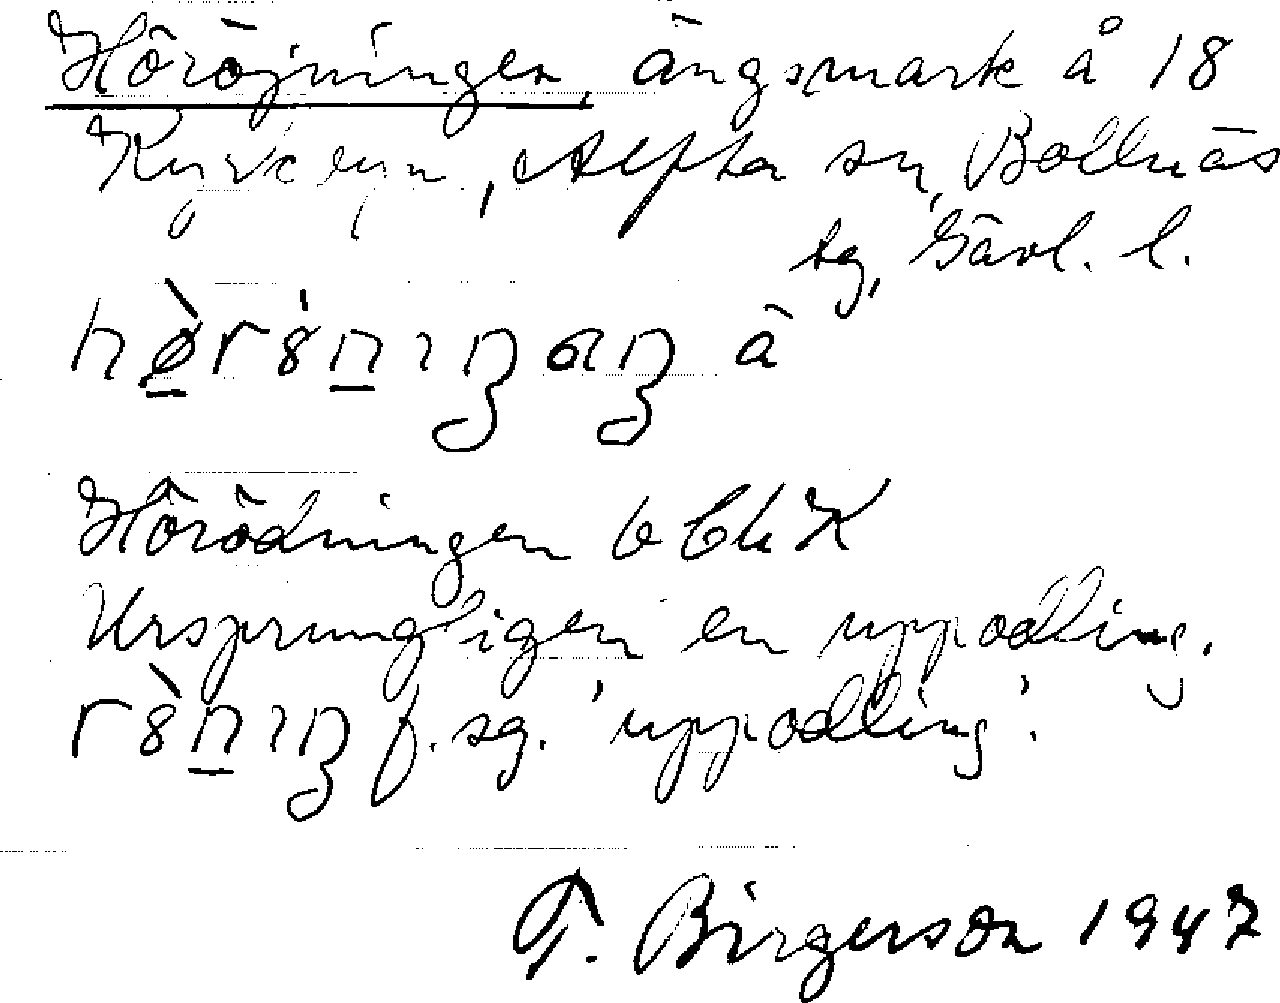 Höröjningen, ängsmark å 18
Kyrkbyn, Alfta sn, Bollnäs
tg, Gävl. l.
å
Hörödningen b
Ursprungligen en uppodling.
f. sg. 'uppodling'.
T. Birgerson 1947